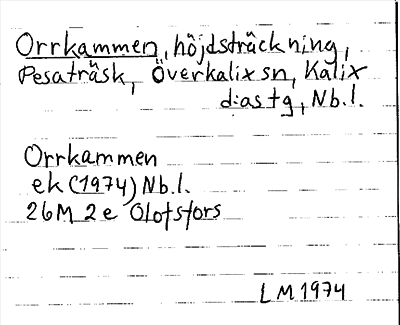 Orrkammen, höjdsträckning,
Pesaträsk, Överkalix sn, Kalix
diastg, Nb.l.
Orrkammen
ek (1974) Nb.l.
26M 2e Olofsfors
LM 1974